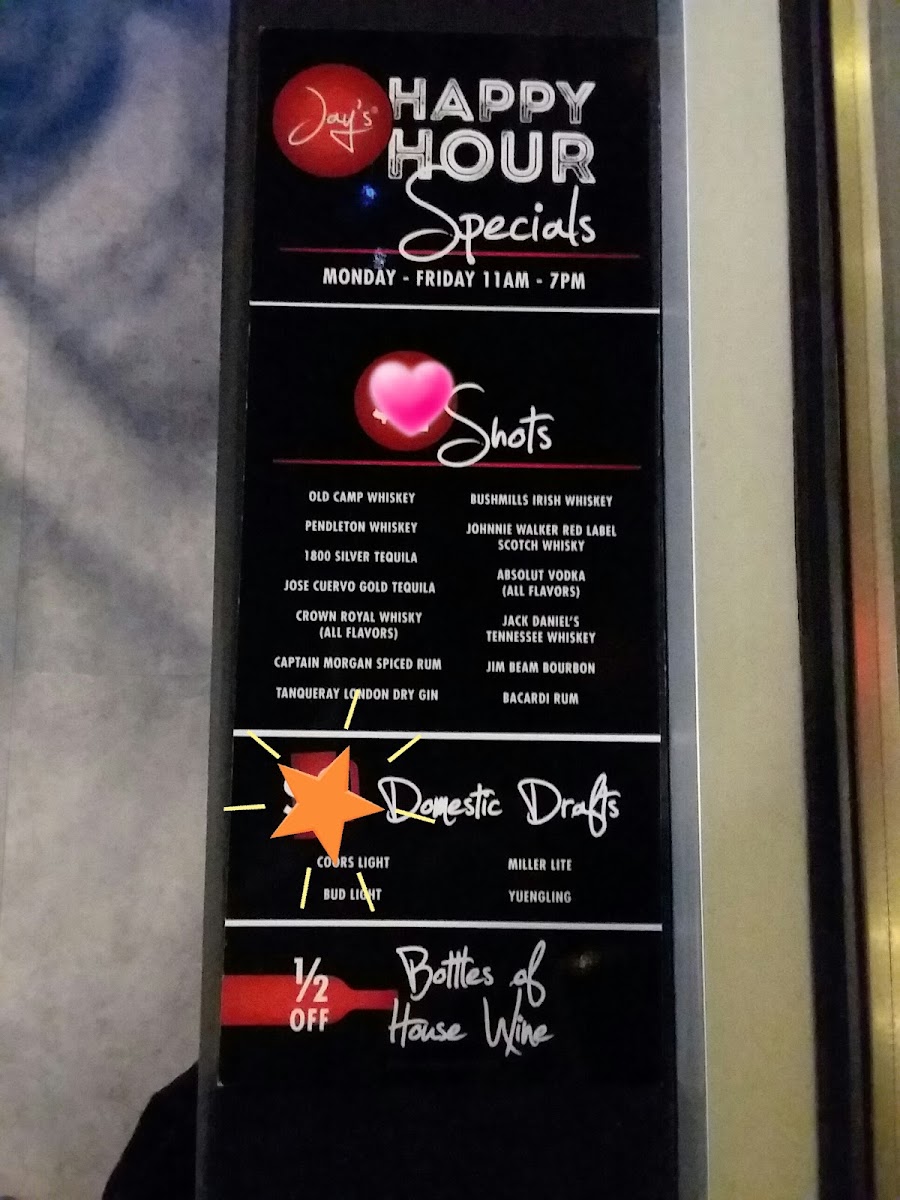 Jay's
HAPPY
HOUR
Specials
MONDAY - FRIDAY 11AM - 7PM
Shots
OLD CAMP WHISKEY
PENDLETON WHISKEY
1800 SILVER TEQUILA
JOSE CUERVO GOLD TEQUILA
CROWN ROYAL WHISKY
(ALL FLAVORS)
CAPTAIN MORGAN SPICED RUM
TANQUERAY LONDON DRY GIN
BUSHMILLS IRISH WHISKEY
JOHNNIE WALKER RED LABEL
SCOTCH WHISKY
ABSOLUT VODKA
(ALL FLAVORS)
JACK DANIEL'S
TENNESSEE WHISKEY
JIM BEAM BOURBON
BACARDI RUM
Domestic Drafts
COORS LIGHT
BUD LIGHT
MILLER LITE
YUENGLING
1/2
OFF
Bottles of
House Wine